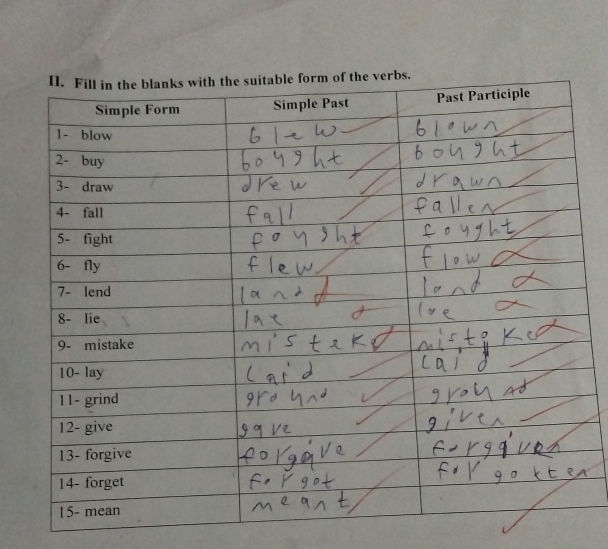 II. Fill in the blanks with the suitable form of the verbs.
Simple Form Simple Past Past Participle
1- blow blew blown
2- buy bought bought
3- draw drew drawn
4- fall fall fallen
5- fight fought fought
6- fly flew flow
7- lend land lond
8- lie lae loe
9- mistake misteked mistoked
10- lay laid laid
11- grind ground ground
12- give gave given
13- forgive forgave forgiven
14- forget forgot forgotten
15- mean meant